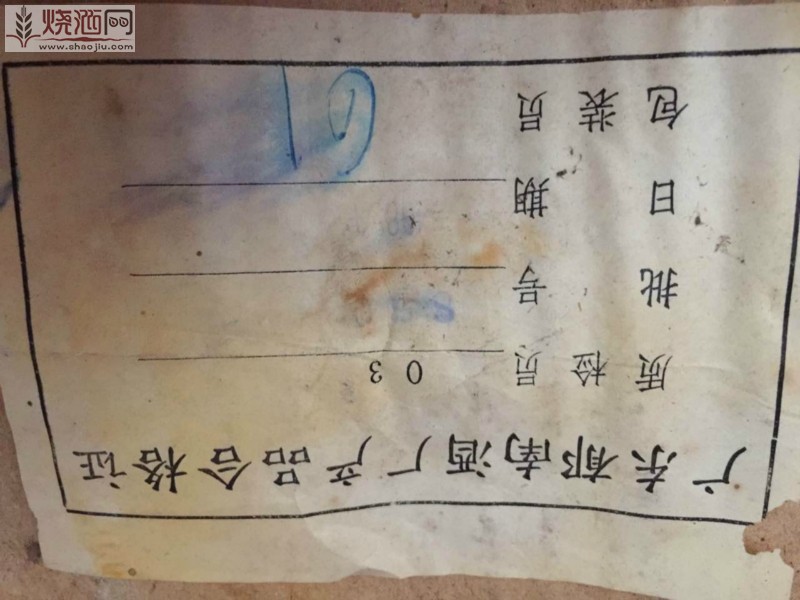 烧酒网
www.shaojiu.com
广东郁南酒厂产品合格证
质检员 03
批号
日期
包装员